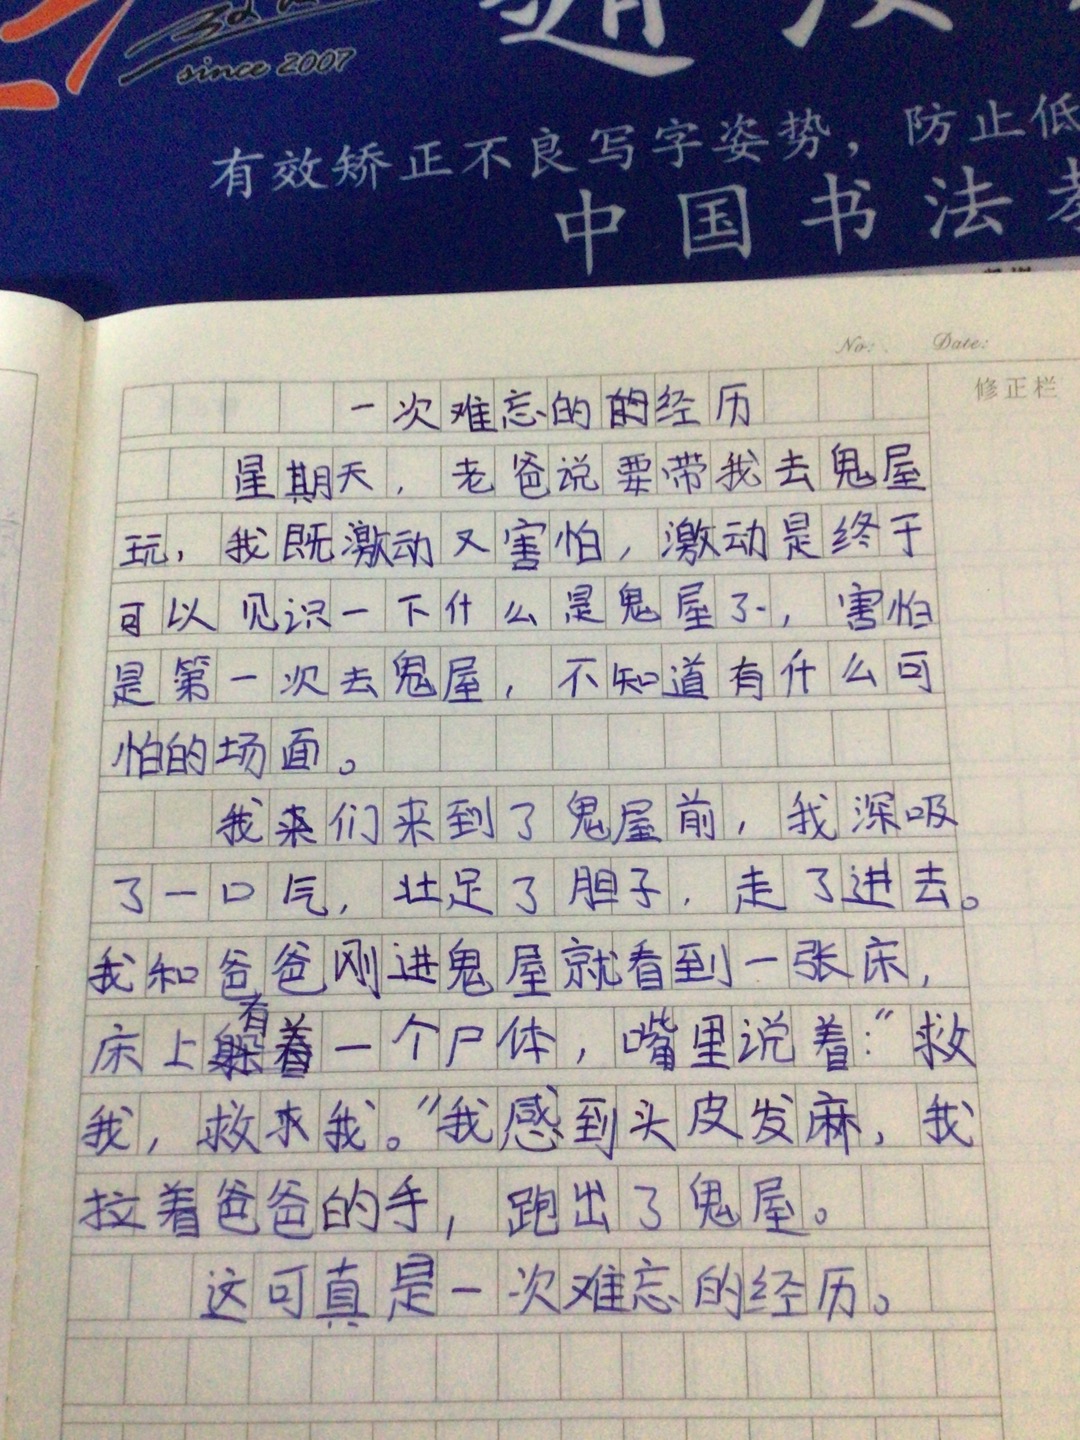 since 2007
有效矫正不良写字姿势，防止低
中国书法
No: Date:
修正栏
一次难忘的的经历
星期天，老爸说要带我去鬼屋
玩，我既激动又害怕，激动是终于
可以见识一下什么是鬼屋了，害怕
是第一次去鬼屋，不知道有什么可
怕的场面。
我来们来到了鬼屋前，我深吸
了一口气，壮足了胆子，走了进去。
我和爸爸刚进鬼屋就看到一张床，
有
床上躲着一个尸体，嘴里说着："救
我，救求我。"我感到头皮发麻，我
拉着爸爸的手，跑出了鬼屋。
这可真是一次难忘的经历。